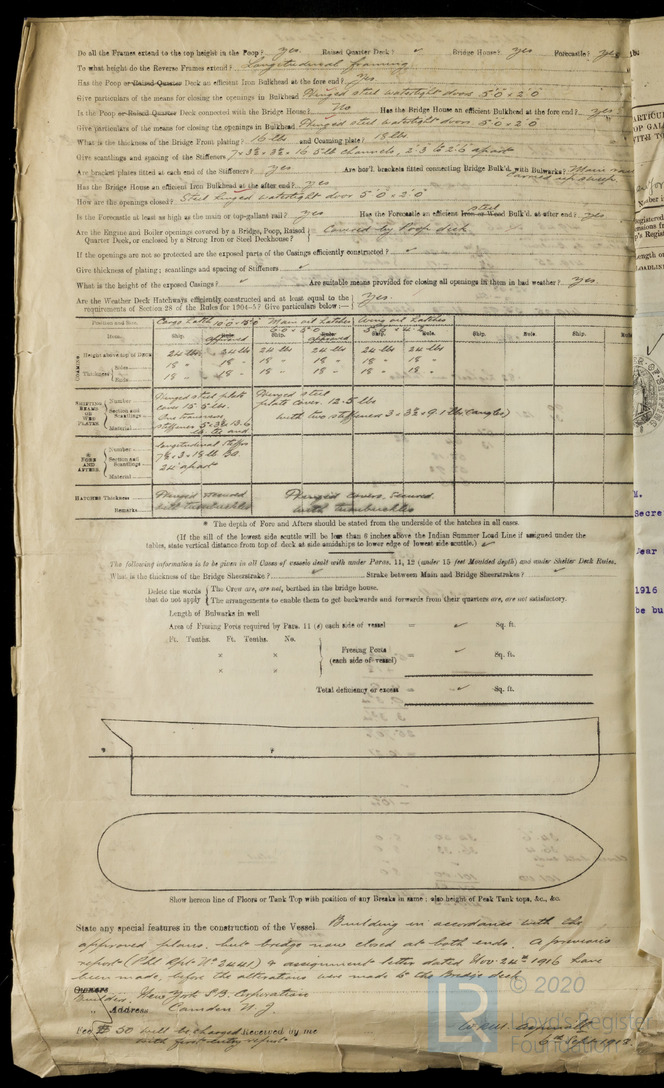 Do all the Frames extend to the top height in the Poop? yes. Raised Quarter Deck? ✓ Bridge House? yes Forecastle? yes
To what height do the Reverse Frames extend? Longitudinal framing
Has the Poop or Raised Quarter Deck an efficient Iron Bulkhead at the fore end? Yes
Give particulars of the means for closing the openings in Bulkhead Hinged steel watertight doors 5'0" x 2'0"
Is the Poop or Raised Quarter Deck connected with the Bridge House? No Has the Bridge House an efficient Bulkhead at the fore end? yes
Give particulars of the means for closing the openings in Bulkhead Hinged steel watertight doors 5'0" x 2'0"
What is the thickness of the Bridge Front plating? 16 lbs and Coaming plate? 18 lbs
Give scantlings and spacing of the Stiffeners 7 x 3½ x 3½ x 16.5 lb channels, 2'3" to 2'6" apart
Are bracket plates fitted at each end of the Stiffeners? yes Are hor'l. brackets fitted connecting Bridge Bulk'd. with Bulwarks? Main
Has the Bridge House an efficient Iron Bulkhead at the after end? yes
How are the openings closed? Steel hinged watertight door 5'0" x 2'0"
Is the Forecastle at least as high as the main or top-gallant rail? yes Has the Forecastle an efficient Iron or Wood steel Bulk'd. at after end? yes
Are the Engine and Boiler openings covered by a Bridge, Poop, Raised Quarter Deck, or enclosed by a Strong Iron or Steel Deckhouse? Covered by Poop deck
If the openings are not so protected are the exposed parts of the Casings efficiently constructed? ✓
Give thickness of plating; scantlings and spacing of Stiffeners ✓
What is the height of the exposed Casings? ✓ Are suitable means provided for closing all openings in them in bad weather? Yes.
Are the Weather Deck Hatchways efficiently constructed and at least equal to the requirements of Section 28 of the Rules for 1904-5? Give particulars below:— Yes.
Position and Size. Cargo hatch 10'0" x 15'0" Main oil hatches 6'0" x 5'0" Wing oil hatches
Item. Ship. Rule. approved Ship. Rule. approved Ship. Rule. Ship. Rule. Ship.
COAMING
Height above top of Deck 24 lbs 24 lbs 24 lbs 24 lbs 24 lbs 24 lbs
Thickness Sides 18 " 18 " 18 " 18 " 18 " 18 "
Ends 18 " 18 " 18 " 18 " 18 " 18 "
SHIFTING BEAMS OR WEB PLATES
Number Hinged steel plate Hinged steel
Section and Scantlings cover 15.5 lbs. plate cover 12.5 lbs
One transverse with two stiffeners 3 x 3 x 9.1 lbs (angles)
Material stiffener
* FORE AND AFTERS.
Number longitudinal
Section and Scantlings
Material 24" apart
HATCHES Thickness Hinged secured Hinged covers, secured
Remarks with turnbuckles with turnbuckles
* The depth of Fore and Afters should be stated from the underside of the hatches in all cases.
(If the sill of the lowest side scuttle will be less than 6 inches above the Indian Summer Load Line if assigned under the
tables, state vertical distance from top of deck at side amidships to lower edge of lowest side scuttle.) ✓
The following information is to be given in all Cases of vessels dealt with under Paras. 11, 12 (under 15 feet Moulded depth) and under Shelter Deck Rules.
What is the thickness of the Bridge Sheerstrake? ✓ Strake between Main and Bridge Sheerstrakes? ✓
Delete the words that do not apply { The Crew are, are not, berthed in the bridge house.
The arrangements to enable them to get backwards and forwards from their quarters are, are not satisfactory.
Length of Bulwarks in well
Area of Freeing Ports required by Para. 11 (e) each side of vessel = ✓ Sq. ft.
Ft. Tenths. Ft. Tenths. No.
× × Freeing Ports (each side of vessel) = ✓ Sq. ft.
× ×
Total deficiency or excess = ✓ Sq. ft.
Show hereon line of Floors or Tank Top with position of any Breaks in same; also height of Peak Tank tops, &c., &c.
State any special features in the construction of the Vessel Building in accordance with the
approved plans, but bridge now closed at both ends. A previous
report (Phl Rpt No 2441) & assignment letter dated Nov 24th 1916 have
been made, before the alterations were made to the Bridge deck
Owners
Builders, New York S.B. Corporation
" Address Camden N.J.
Fee $ 50 will be charged Received by me
with first entry report
6th Sept 1918.
LR © 2020
Lloyd's Register
Foundation
1916
be bu
Secre